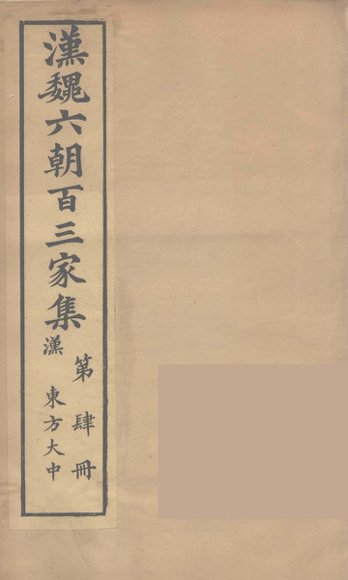 漢魏六朝百三家集
第肆冊
漢 東方大中